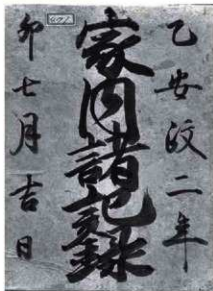 乙安政二年
家内諸記録
卯七月吉日